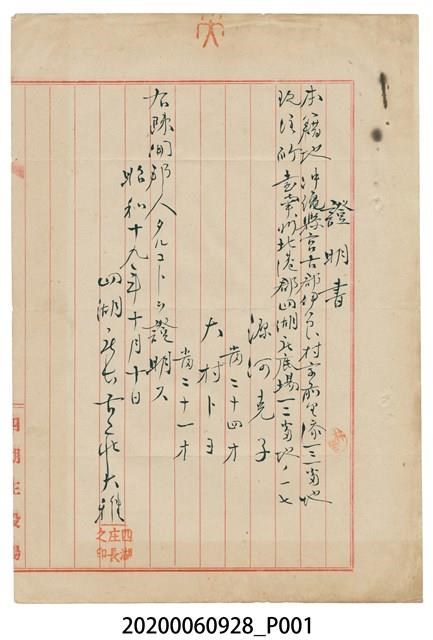 證明書
本籍地 沖縄縣宮古郡伊良部村字前里添一三番地
現住所 臺南州北港郡四湖庄底場一二番地ノ一七
源河克子
當二十四才
大村トヨ
當二十一才
右陳開邦人タルコトヲ證明ス
昭和十九年十月十日
四湖庄長 古 大雅
四湖庄長之印
四湖庄役場
20200060928_P001